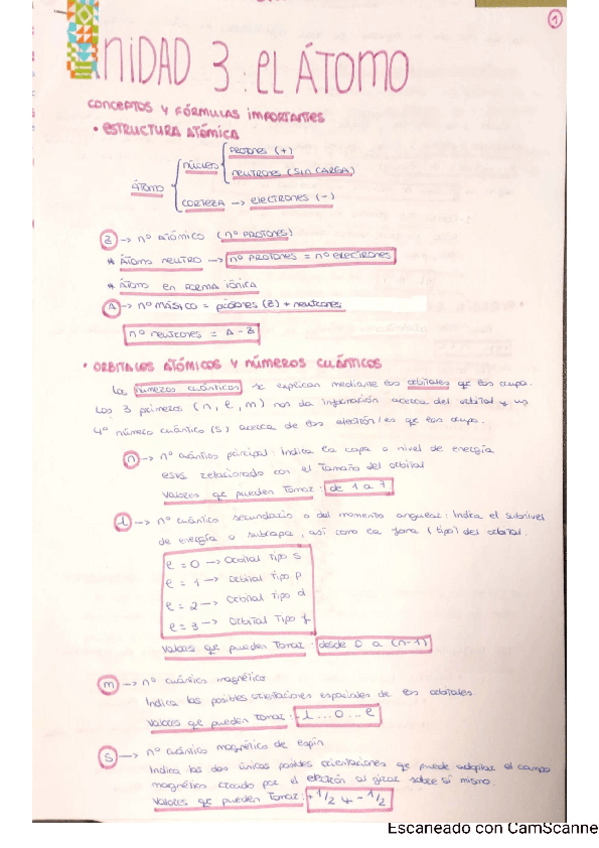 1
UNIDAD 3: EL ÁTOMO
CONCEPTOS Y FÓRMULAS IMPORTANTES
• ESTRUCTURA ATÓMICA
ÁTOMO
NÚCLEO
PROTONES (+)
NEUTRONES (SIN CARGA)
CORTEZA → ELECTRONES (-)
Z → nº ATÓMICO (nº PROTONES)
* ÁTOMO NEUTRO → nº PROTONES = nº ELECTRONES
* ÁTOMO EN FORMA IÓNICA
A → nº MÁSICO = (Z) + neutrones
nº neutrones = A - Z
• ORBITALES ATÓMICOS Y NÚMEROS CUÁNTICOS
Los números cuánticos se explican mediante los orbitales qe los ocupa.
Los 3 primeros (n, l, m) nos da información acerca del orbital y un
4º número cuántico (s) acerca de los electrón/es qe lon ocupa.
n → nº cuántico principal: Indica la capa o nivel de energía
está relacionado con el Tamaño del orbital
Valores qe pueden Tomar: de 1 a 7
l → nº cuántico secundario o del momento angular: Indica el subnivel
de energía o subcapa, así como la forma (tipo) del orbital.
l = 0 → Orbital Tipo s
l = 1 → Orbital Tipo p
l = 2 → Orbital Tipo d
l = 3 → Orbital Tipo f
Valores qe pueden Tomar: desde 0 a (n-1)
m → nº cuántico magnético
Indica las posibles orientaciones espaciales de los orbitales
Valores qe pueden tomar: -l...0...l
s → nº cuántico magnético de espín
Indica las dos únicas posibles orientaciones qe puede adoptar el campo
magnético creado por el electrón al girar sobre sí mismo.
Valores qe pueden Tomar: +1/2 y -1/2
Escaneado con CamScanne